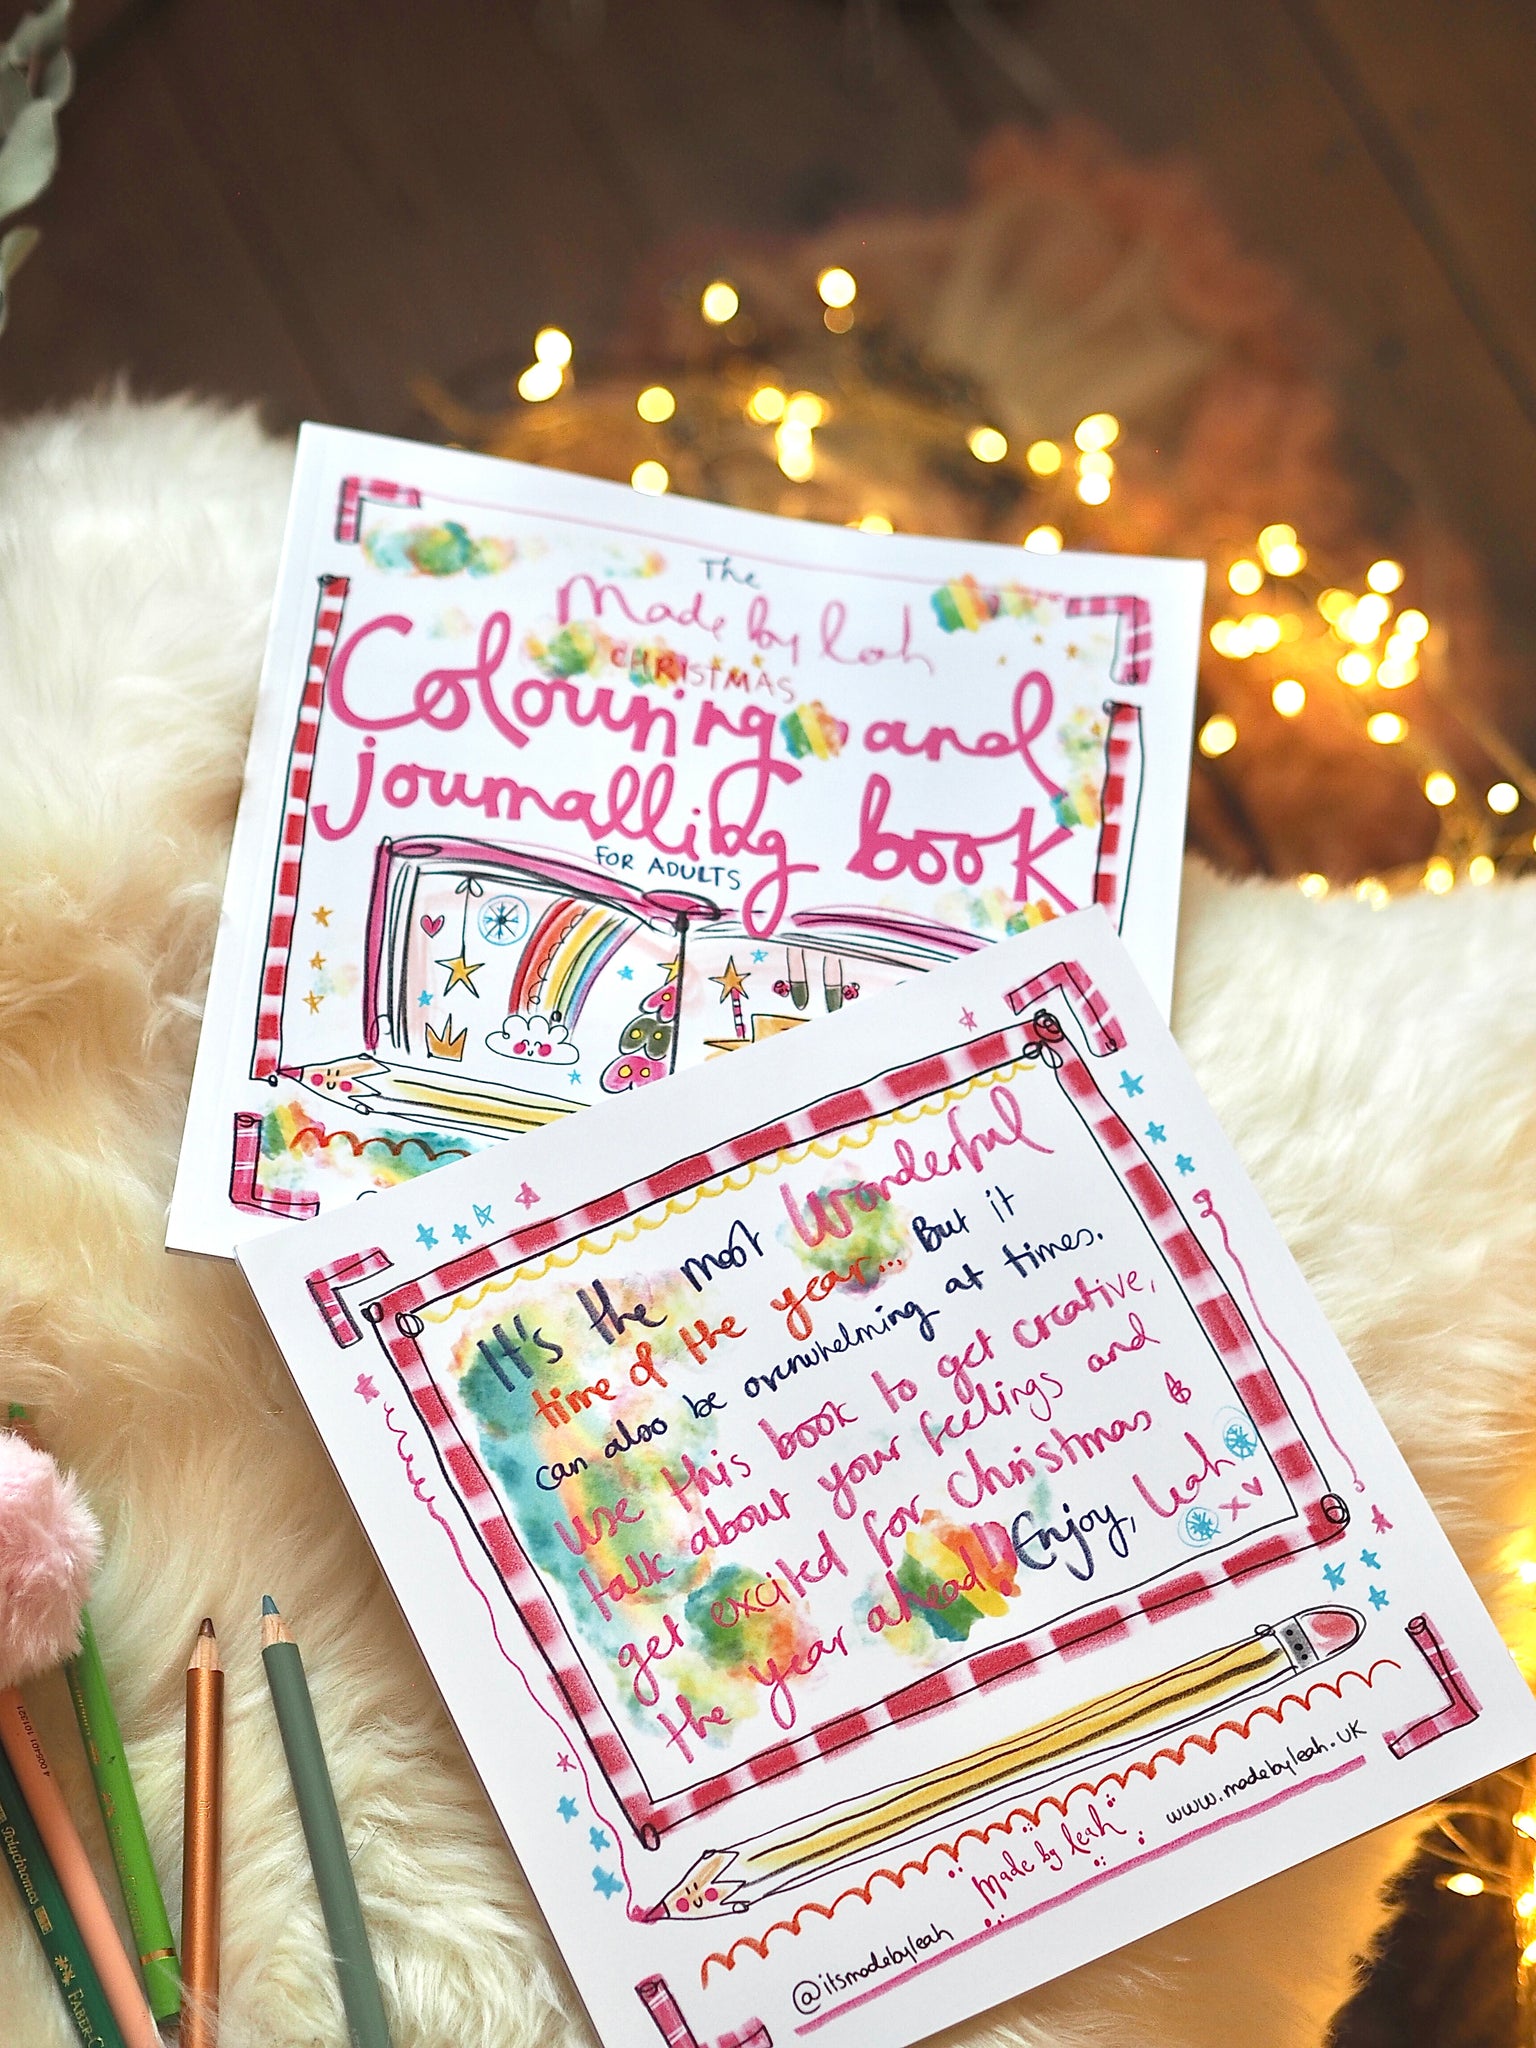 The
Made by leah
CHRISTMAS
Colouring and
journalling book
FOR ADULTS
It's the most Wonderful
time of the year... But it
can also be overwhelming at times.
Use this book to get creative,
talk about your feelings and
get excited for Christmas &
the year ahead! Enjoy, Leah
x
@itsmadebyleah
Made by leah
www.madebyleah.UK
4 005401 101321
Polychromos
FABER-C